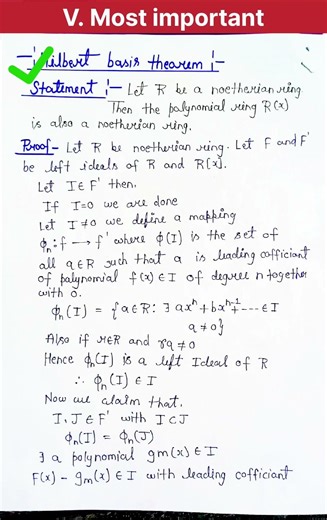 V. Most important
Hilbert basis theorem :-
Statement :- Let R be a noetherian ring
Then the polynomial ring R(x)
is also a noetherian ring.
Proof - Let R be noetherian ring. Let F and F'
be left ideals of R and R[x].
Let I ∈ F' then.
If I=0 we are done
Let I ≠ 0 we define a mapping
ϕn : f → f' where ϕ(I) is the set of
all a ∈ R such that a is leading cofficiant
of polynomial f(x) ∈ I of degree n together
with 0.
ϕn(I) = {a ∈ R : ∃ axⁿ + bxⁿ⁻¹ + --- ∈ I
a ≠ 0}
Also if r ∈ R and ra ≠ 0
Hence ϕn(I) is a left Ideal of R
∴ ϕn(I) ∈ I
Now we claim that.
I, J ∈ F' with I ⊂ J
ϕn(I) = ϕn(J)
∃ a polynomial gm(x) ∈ I
F(x) - gm(x) ∈ I with leading cofficiant